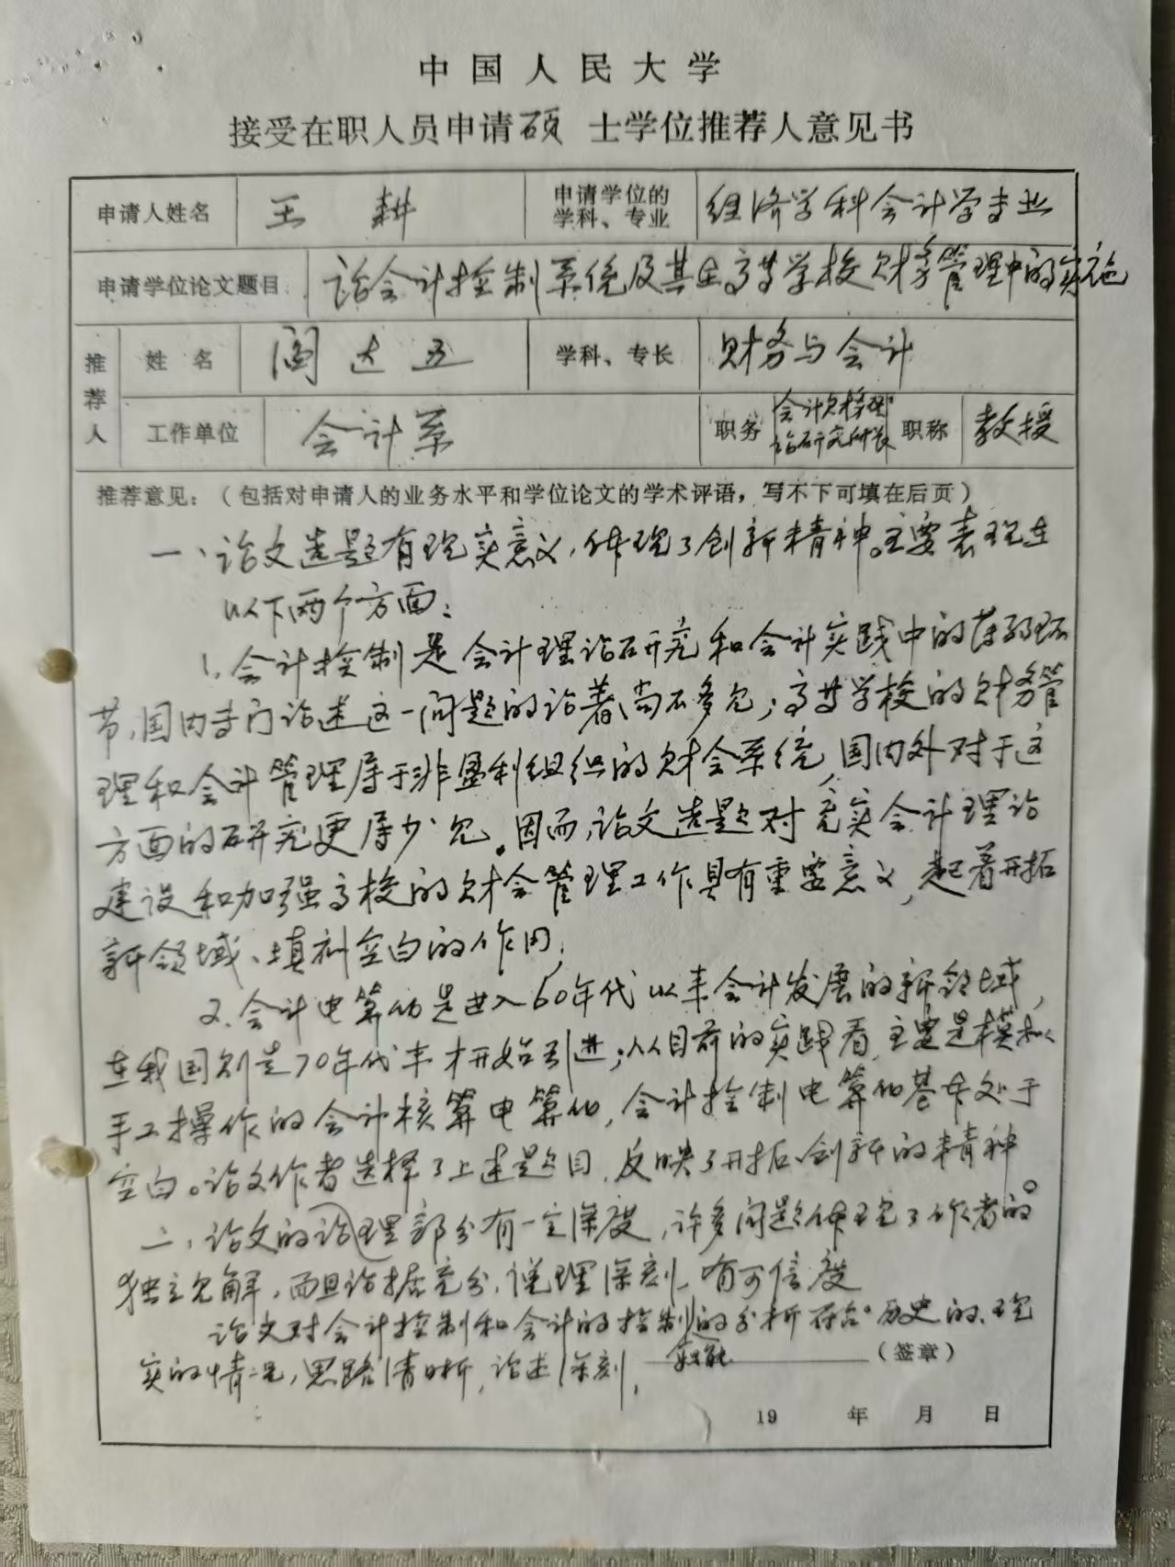 中国人民大学
接受在职人员申请硕 士学位推荐人意见书
申请人姓名 王 耕 申请学位的学科、专业 经济学科会计学专业
申请学位论文题目 论会计控制系统及其在高等学校财务管理中的实施
推荐人 姓 名 阎达五 学科、专长 财务与会计
工作单位 会计系 职务 会计财务理论研究所所长 职称 教授
推荐意见:(包括对申请人的业务水平和学位论文的学术评语,写不下可填在后页)
一、论文选题有现实意义,体现了创新精神。主要表现在
以下两个方面:
1.会计控制是会计理论研究和会计实践中的薄弱环
节,国内专门论述这一问题的论著尚不多见;高等学校的财务管
理和会计管理属于非盈利组织的财会系统,国内外对于这
方面的研究更属少见。因而,论文选题对充实会计理论
建设和加强高校的财会管理工作具有重要意义,起着开拓
新领域、填补空白的作用;
2.会计电算化是进入60年代以来会计发展的新领域,
在我国则是70年代末才开始引进;从目前的实践看,主要是模拟
手工操作的会计核算电算化,会计控制电算化基本处于
空白。论文作者选择了上述题目,反映了开拓、创新的精神。
二、论文的论理部分有一定深度,许多问题体现了作者的
独立见解,而且论据充分,说理深刻,有可信度
论文对会计控制和会计的控制的分析符合历史的、现
实的情况,思路清晰,论述深刻,
(签章)
19 年 月 日